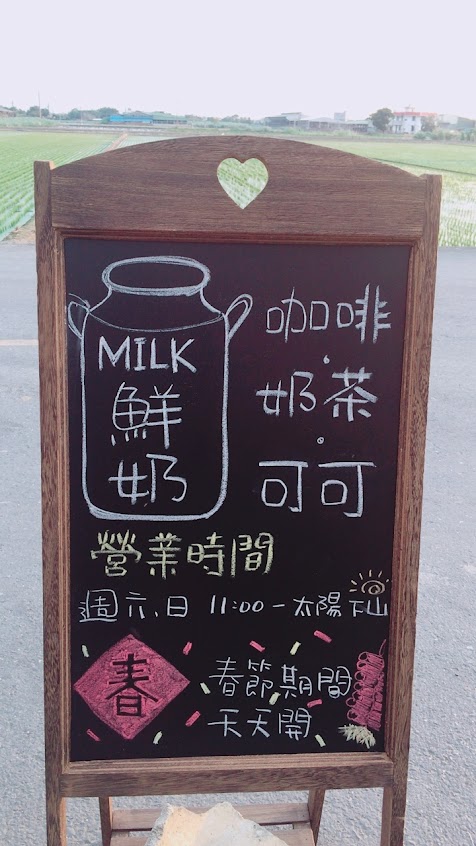 MILK
鮮
奶
咖啡
·
奶·茶
·
可可
營業時間
週六、日 11:00－太陽下山
春
春節期間
天天開